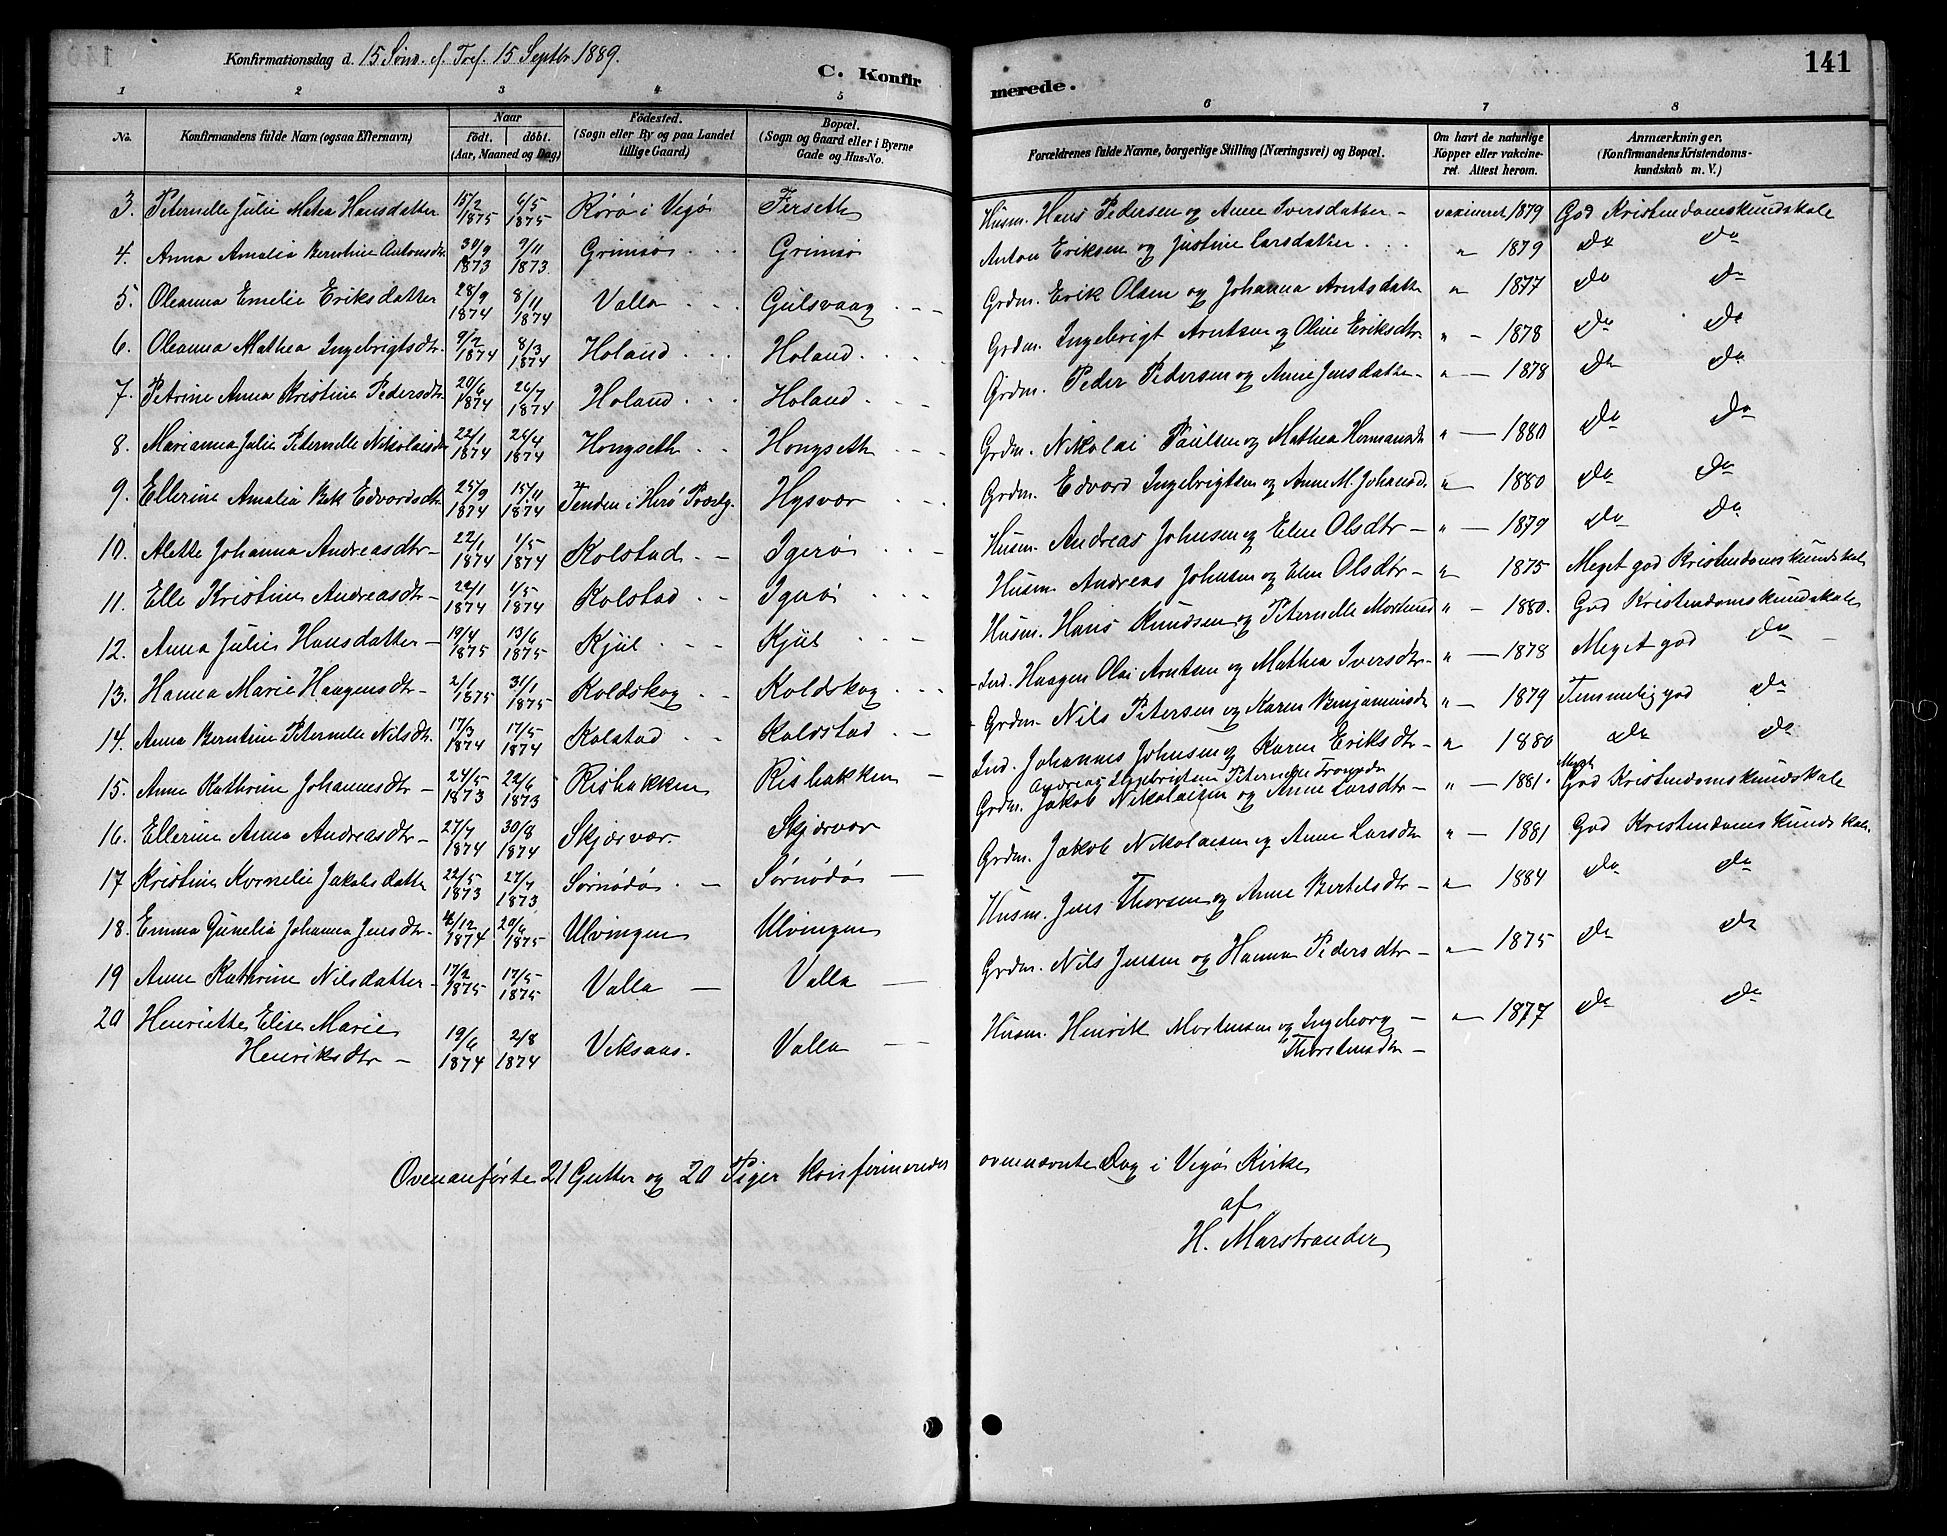 Konfirmationsdag d. 15 Sønd. ef. Tref. 15 Septbr 1889.
C. Konfir
merede.
141
1 2 3 4 5 6 7 8
No. Konfirmandens fulde Navn (ogsaa Efternavn) Naar født. døbt. (Aar, Maaned og Dag) Fødested. (Sogn eller By og paa Landet tillige Gaard) Bopæl. (Sogn og Gaard eller i Byerne Gade og Hus-No. Forældrenes fulde Navne, borgerlige Stilling (Næringsvei) og Bopæl. Om havt de naturlige Kopper eller vakcineret. Attest herom. Anmærkninger. (Konfirmandens Kristendomskundskab m. V.)
3. Peternelle Julie Matea Hansdatter 15/2 1875 6/5 1875 Rörö i Vegø Ferseth Husm. Hans Pedersen og Anne Iversdatter - vaxineret 1879 God Kristendomskundskab
4. Anna Amalia Berntine Antonsdtr. 30/9 1873 9/11 1873. Grimsø Grimsø Anton Eriksen og Justine Larsdatter " 1879 do do
5. Oleanna Emelie Eriksdatter 28/9 1874 8/11 1874 Valla Gulsvaag Grdm. Erik Olsen og Johanna Arntsdatter " 1877 do do
6. Oleanna Mathea Ingebrigtsdtr. 9/2 1874 8/3 1874 Holand Holand Grdm. Ingebrigt Arntsen og Oline Eriksdtr. " - 1878 do do
7. Petrine Anna Kristine Pedersdtr 20/6 1874 26/7 1874 Holand Holand Grdm. Peder Pedersen og Anne Jensdatter - " - 1878 do do
8. Marianna Julie Peternelle Nikolaisdtr 22/1 1874 26/4 1874 Hongseth Hongseth Grdm. Nikolai Paulsen og Mathea Hermansdtr " - 1880 do do
9. Ellerine Amalia Bek Edvardsdtr. 25/9 1874 15/11 1874 Tenden i Herö Præstg. Hysvær Grdm. Edvard Ingebrigtsen og Anne M. Johansd. " - 1880 do do
10. Alette Johanna Andreasdtr - 22/1 1874 1/5 1874 Kolstad Igerø Husm. Andreas Johnsen og Elen Olsdtr - " - 1879 do do
11. Elle Kristine Andreasdtr - 22/1 1874 1/5 1874 Kolstad Igerø Husm. Andreas Johnsen og Elen Olsdtr - " 1875 Meget god Kristendomskundskab
12. Anna Julie Hansdatter - 19/4 1875 13/6 1875 Kjül Kjül Husm. Hans Knudsen og Peternelle Mortensd " - 1880. God Kristendomskundskab
13. Hanna Marie Haagensdtr - 2/1 1875 31/1 1875 Koldskog Koldskog Ind. Haagen Olai Arntsen og Mathea Iversdtr - " - 1878 Meget god do
14. Anna Berntine Peternelle Nilsdtr. 17/3 1874 17/5 1874 Kolstad Koldstad Grdm. Nils Petersen og Karen Benjaminsdtr " - 1879 Temmelig god do
15. Anne Kathrine Johannesdtr - 24/5 1873 22/6 1873 Risbakken Risbakken Ind. Johannes Johnsen og Karen Eriksdtr - " 1880 do do
16. Ellerine Anna Andreasdtr - 27/7 1874 30/8 1874 Skjærvær. Skjærvær Andreas Ingebrigtsen Peternelle Grdm. Jakob Nikolaisen og Anne Larsdtr - " - 1881. Meget God Kristendomskundskab
17 Kristine Kornelie Jakobsdatter 22/5 1873 27/7 1873 Sørnødø Sørnødø Grdm. Jakob Nikolaisen og Anne Larsdtr " - 1881 God Kristendomskundskab.
18. Emma Gunelia Johanna Jensdtr. 4/12 1874 20/6 1875 Ulvingen Ulvingen Husm. Jens Thorsen og Anne Bertelsdtr - " - 1884 do do
19 Anne Kathrine Nilsdatter - 17/2 1875 17/5 1875 Valla Valla Grdm. Nils Jensen og Hanna Pedersdtr - " - 1875 do do
20 Henriette Elise Marie 19/6 1874 2/8 1874 Veksaas. Valla Husm. Henrik Mortensen og Ingeborg - " - 1877 do do
Henriksdtr - Thorstensdtr -
Ovenanførte 21 Gutter og 20 Piger konfirmerede ovennævnte Dag i Vegø Kirke
af
H. Marstrander